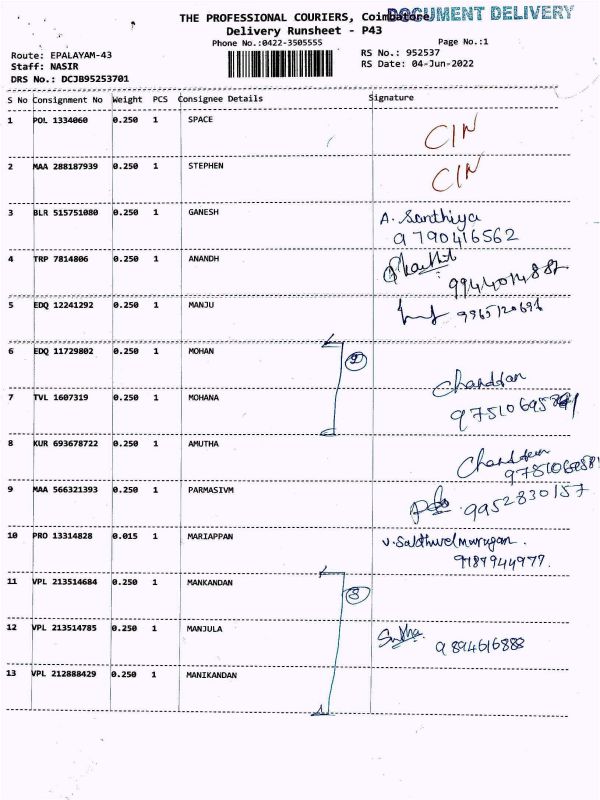 THE PROFESSIONAL COURIERS, Coimbatore
DOCUMENT DELIVERY
Delivery Runsheet - P43
Phone No.:0422-3505555
Page No.:1
Route: EPALAYAM-43
RS No.: 952537
Staff: NASIR
RS Date: 04-Jun-2022
DRS No.: DCJB95253701
S No Consignment No Weight PCS Consignee Details Signature
1 POL 1334060 0.250 1 SPACE CIN
2 MAA 288187939 0.250 1 STEPHEN CIN
3 BLR 515751080 0.250 1 GANESH A. Santhiya
9790416562
4 TRP 7814806 0.250 1 ANANDH
9944014882
5 EDQ 12241292 0.250 1 MANJU 9965120696
6 EDQ 11729802 0.250 1 MOHAN
2
Chandran
7 TVL 1607319 0.250 1 MOHANA
8 KUR 693678722 0.250 1 AMUTHA
9 MAA 566321393 0.250 1 PARMASIVM 9952830157
10 PRO 13314828 0.015 1 MARIAPPAN
9787944977.
11 VPL 213514684 0.250 1 MANKANDAN
3
12 VPL 213514785 0.250 1 MANJULA
9894616888
13 VPL 212888429 0.250 1 MANIKANDAN